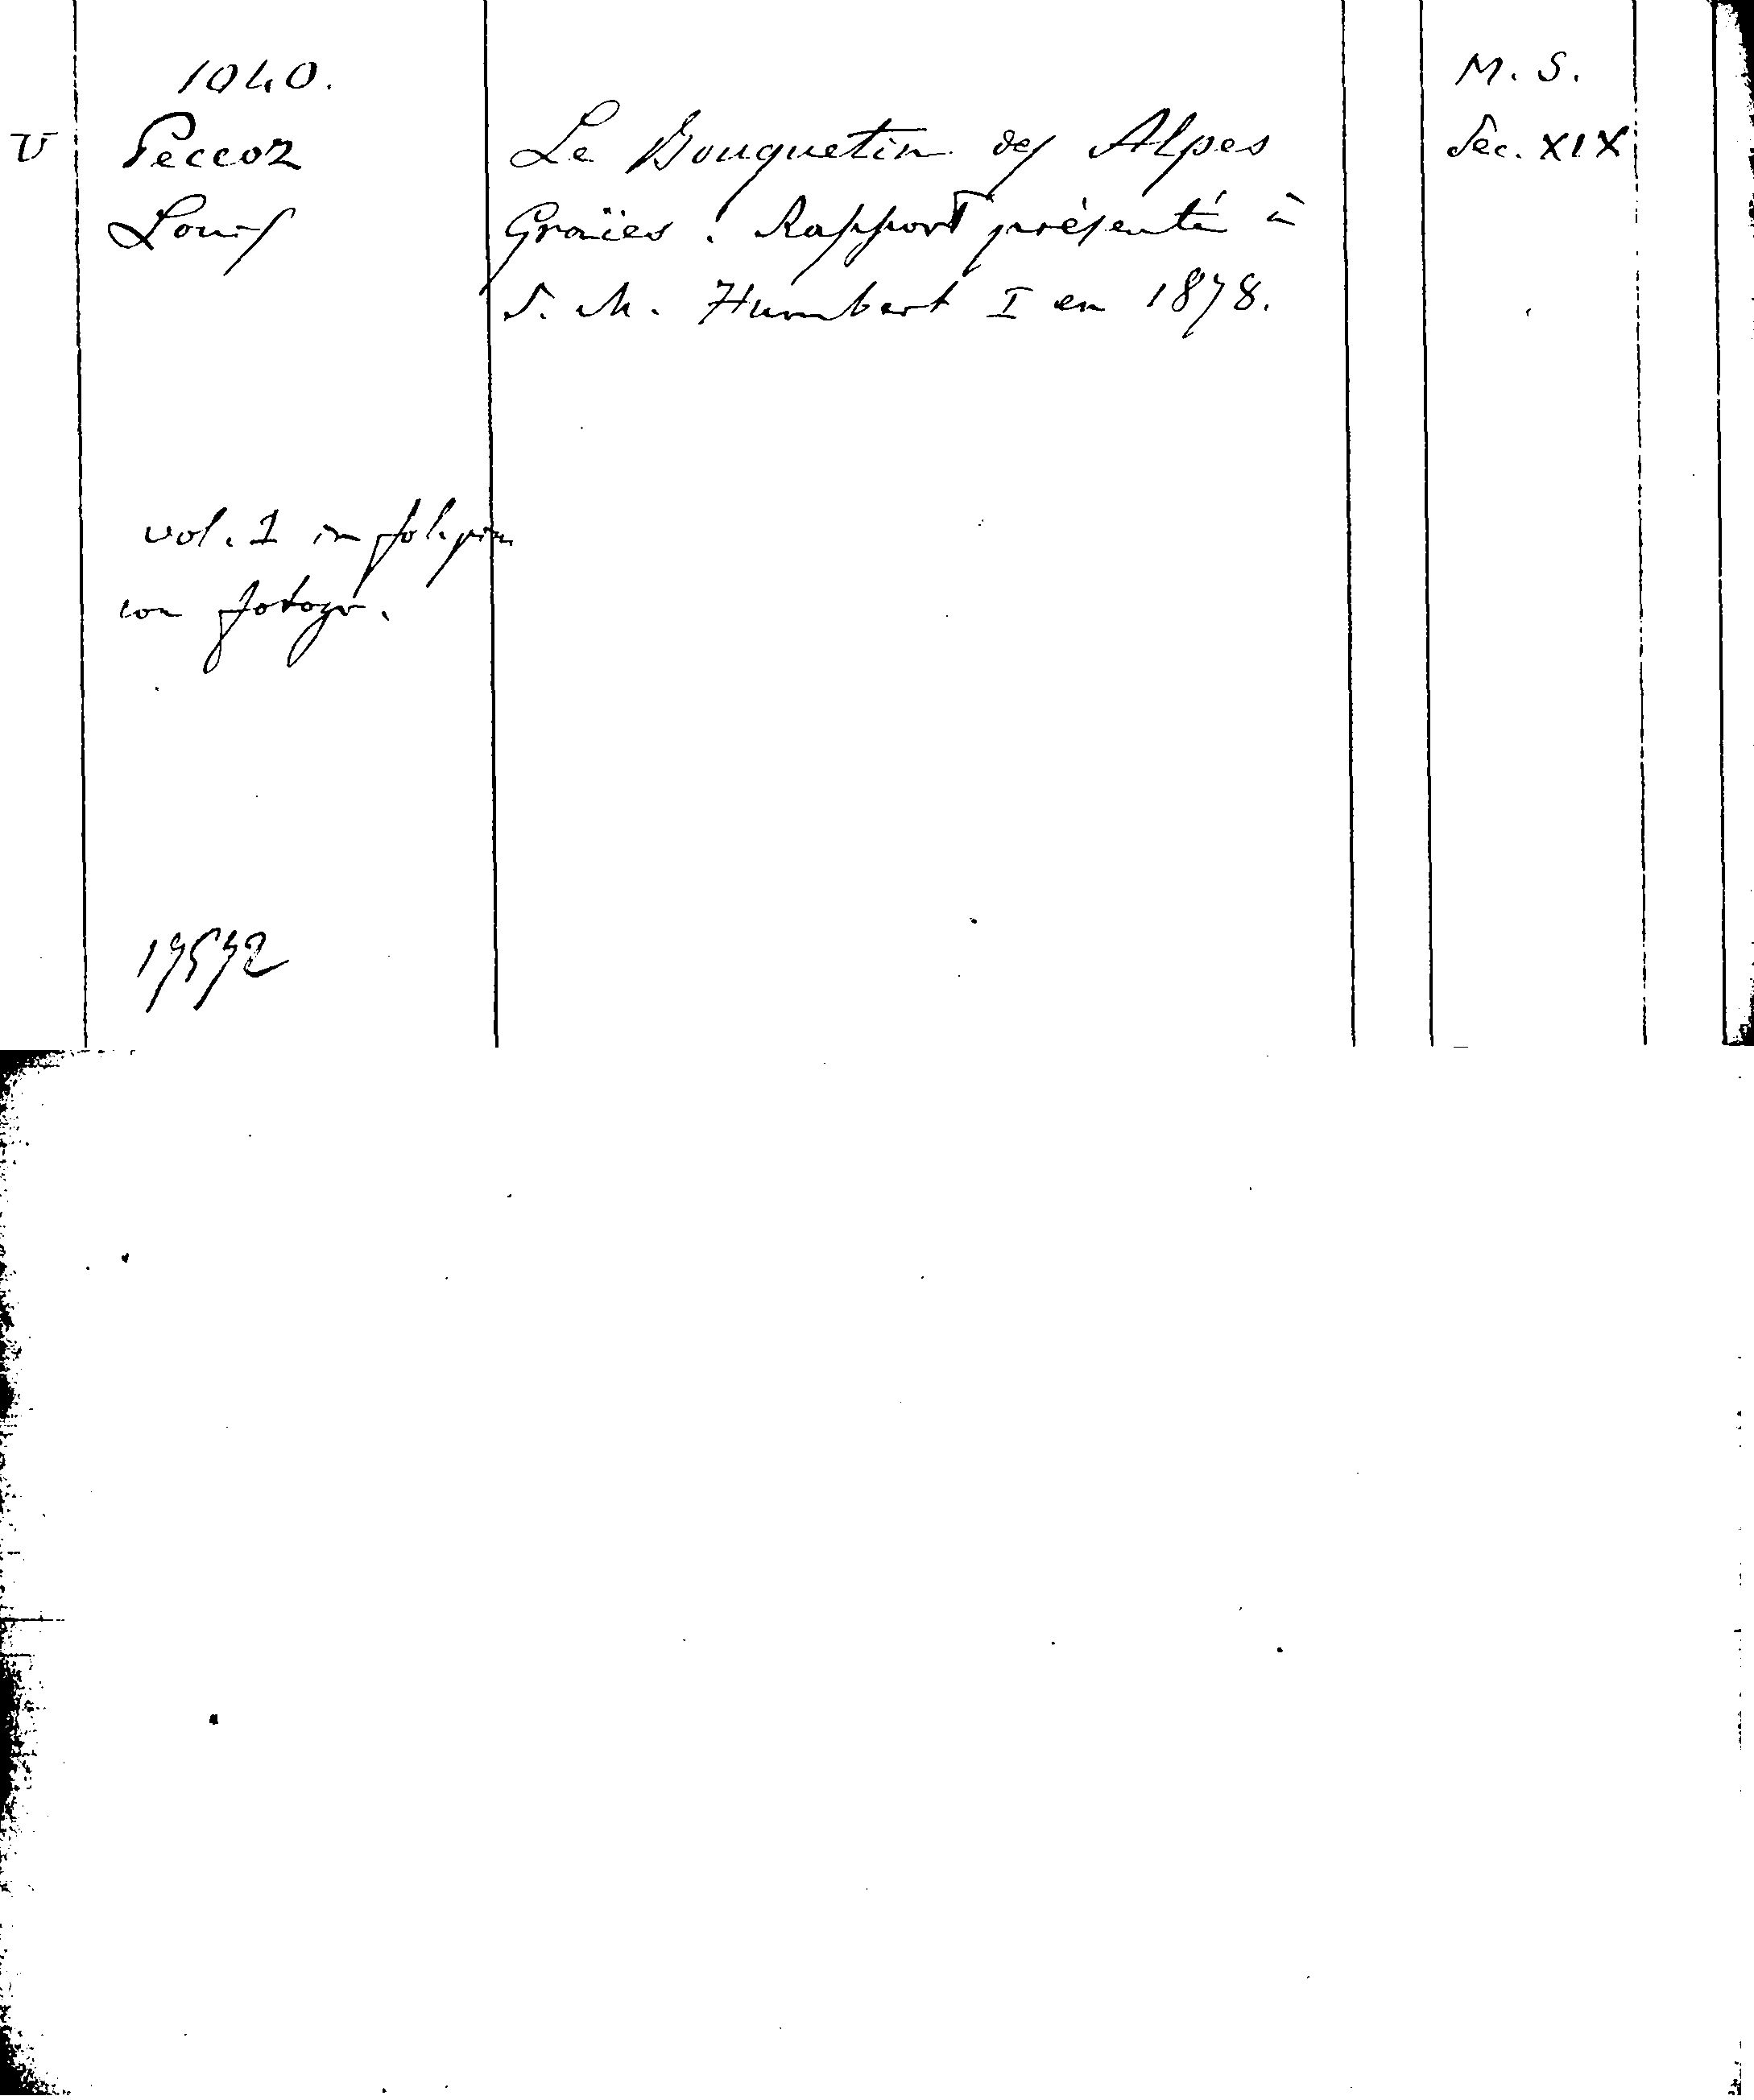 1040.
V
Peccoz
Louis
Le Bouquetin des Alpes
Graïes. Rapport présenté à
S. M. Humbert I en 1878.
M. S.
Sec. XIX
vol. 1 in fol. picc.
con fotogr.
17572